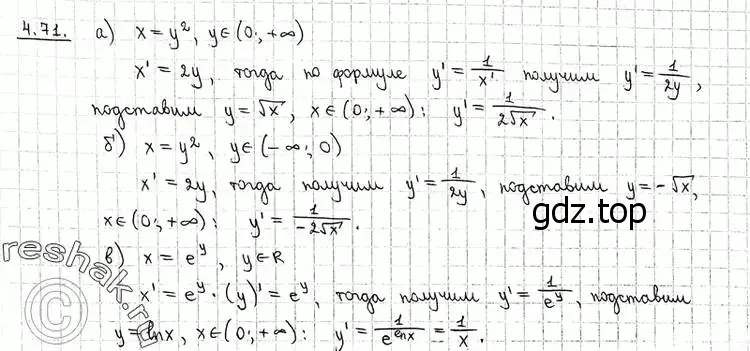 4.71. а) x = y², y∈(0; +∞)
x' = 2y, тогда по формуле y' = 1/x' получим y' = 1/2y,
подставим y = √x, x∈(0; +∞): y' = 1/2√x.
б) x = y², y∈(-∞; 0)
x' = 2y, тогда получим y' = 1/2y, подставим y = -√x,
x∈(0; +∞): y' = 1/-2√x.
gdz.top
в) x = e^y, y∈R
x' = e^y · (y)' = e^y, тогда получим y' = 1/e^y, подставим
y = lnx, x∈(0; +∞): y' = 1/e^lnx = 1/x.
reshak.ru